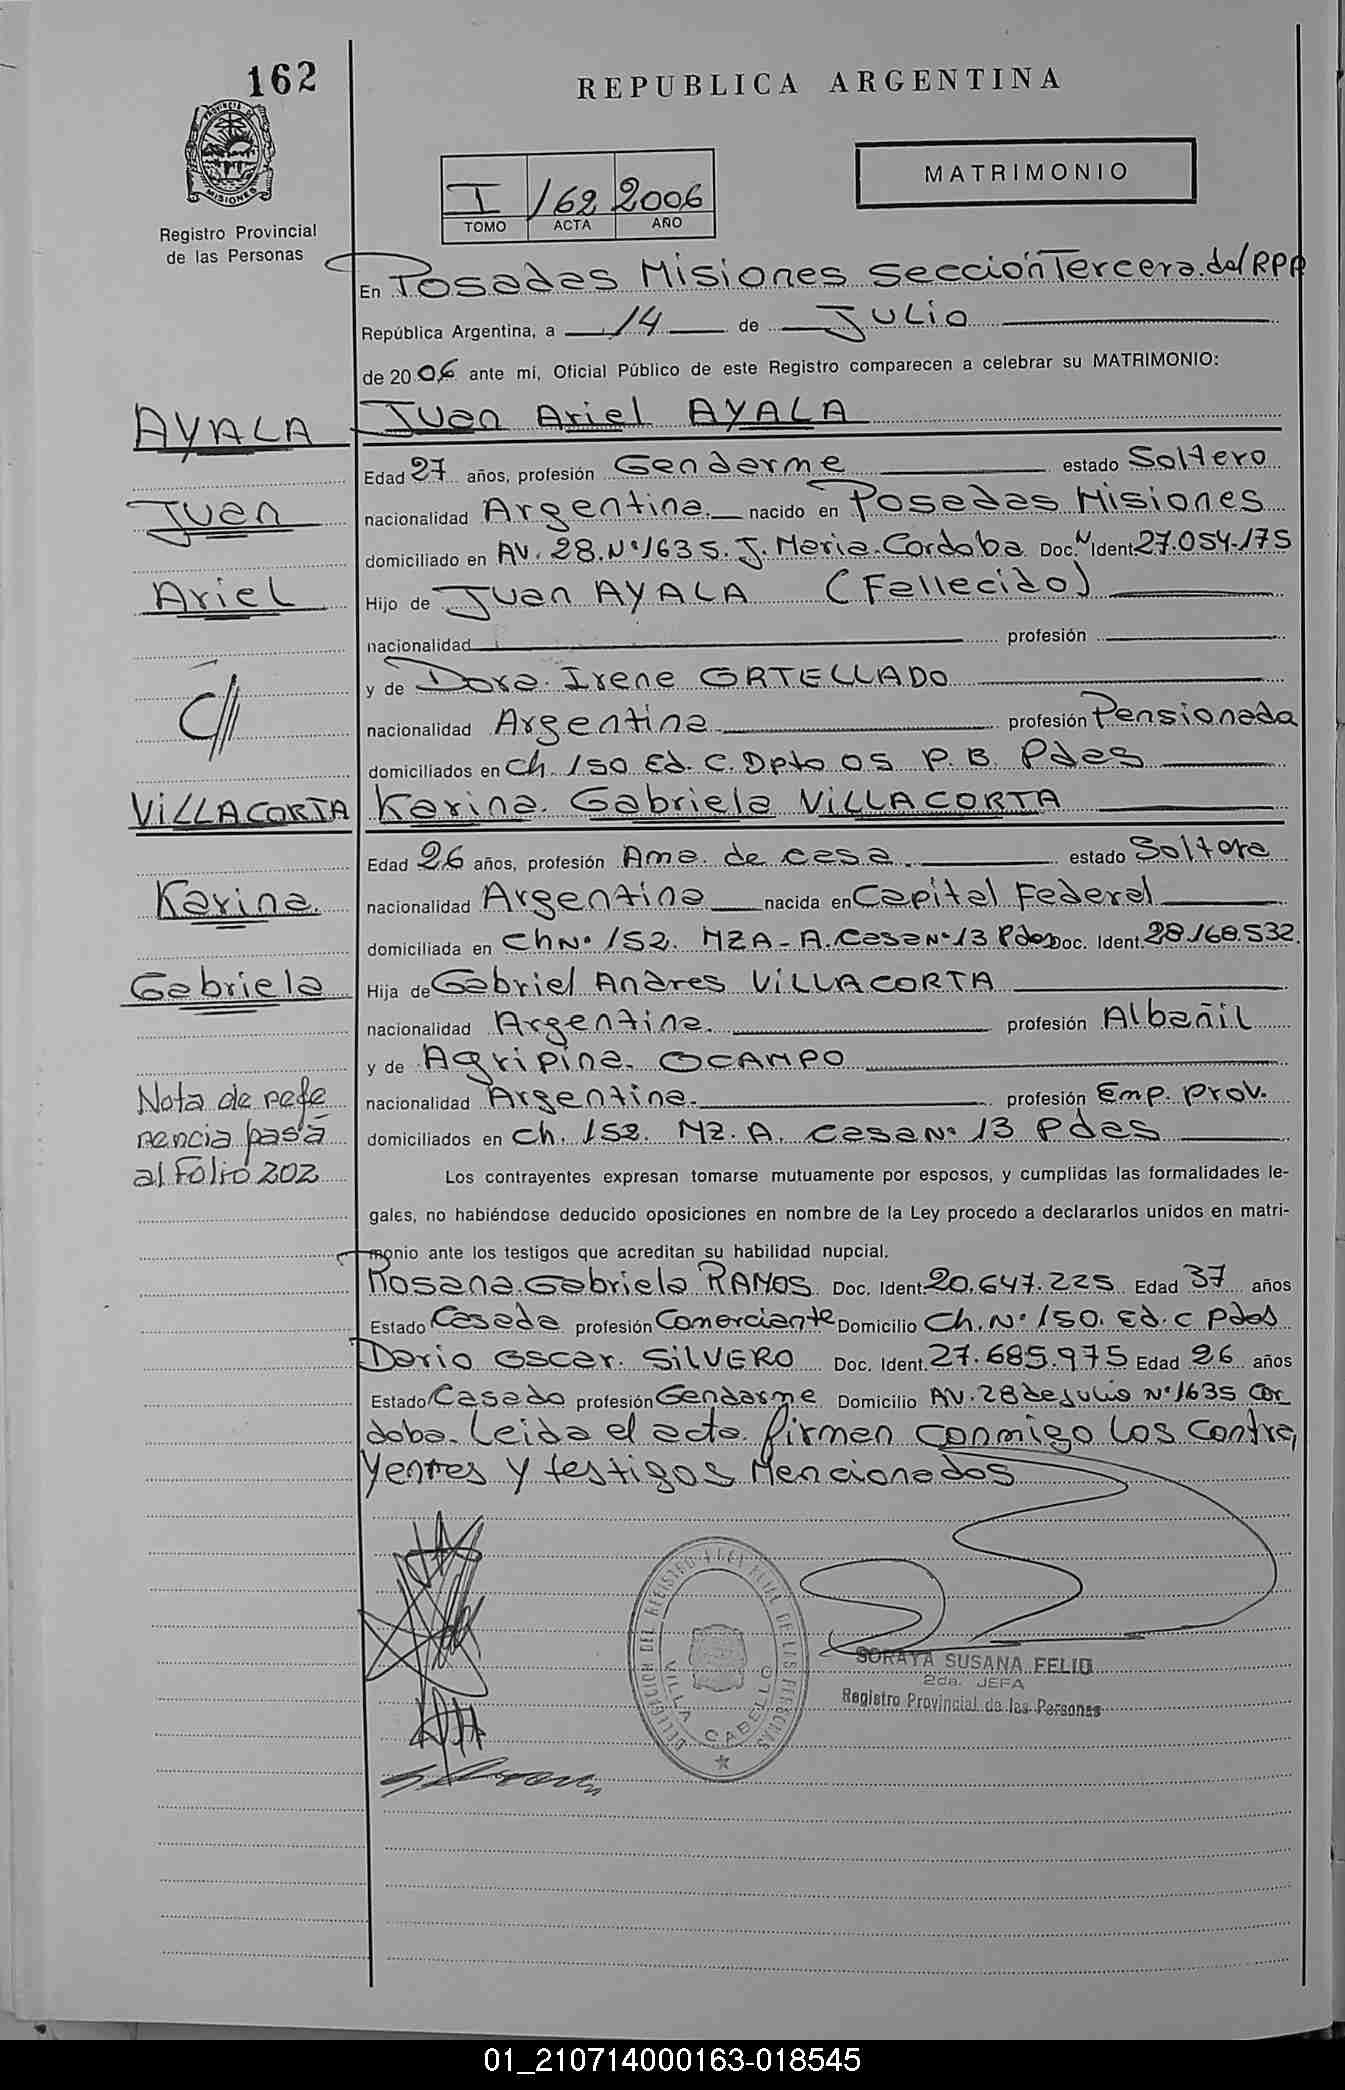 162
REPUBLICA ARGENTINA
PROVINCIA DE MISIONES
Registro Provincial
de las Personas
MATRIMONIO
I 162 2006
TOMO ACTA AÑO
En Posadas Misiones Sección Tercera del RPP
República Argentina, a 14 de Julio
de 2006 ante mí, Oficial Público de este Registro comparecen a celebrar su MATRIMONIO:
AYALA Juan Ariel AYALA
Edad 27 años, profesión Gendarme estado Soltero
Juan nacionalidad Argentina nacido en Posadas Misiones
domiciliado en AV. 28. Nº 1635. J. Maria. Cordoba Doc. Ident. 27.054.175
Ariel Hijo de Juan AYALA (Fallecido)
nacionalidad profesión
C// y de Dora Irene ORTELLADO
nacionalidad Argentina profesión Pensionada
domiciliados en Ch. 150 Ed. C. Dpto 05 P.B. Pdas
VILLACORTA Karina Gabriela VILLACORTA
Edad 26 años, profesión Ama de casa estado Soltera
Karina nacionalidad Argentina nacida en Capital Federal
domiciliada en Ch Nº 152. MZA-A. Casa Nº 13 Pdas Doc. Ident. 28.168.532
Gabriela Hija de Gabriel Andres VILLACORTA
nacionalidad Argentina profesión Albañil
y de Agripina OCAMPO
Nota de refe nacionalidad Argentina profesión Emp. Prov.
rencia pasa domiciliados en Ch. 152. MZ. A. Casa Nº 13 Pdas
al Folio 202 Los contrayentes expresan tomarse mutuamente por esposos, y cumplidas las formalidades le-
gales, no habiéndose deducido oposiciones en nombre de la Ley procedo a declararlos unidos en matri-
monio ante los testigos que acreditan su habilidad nupcial.
Rosana Gabriela RAMOS Doc. Ident. 20.647.225 Edad 37 años
Estado Casada profesión Comerciante Domicilio Ch. Nº 150. Ed. C Pdas
Dario Oscar SILVERO Doc. Ident. 27.685.975 Edad 26 años
Estado Casado profesión Gendarme Domicilio AV. 28 de Julio Nº 1635 Cor
doba. Leida el acta firman conmigo los contra
yentes y testigos Mencionados
DELEGACION DEL REGISTRO PROVINCIAL DE LAS PERSONAS
VILLA CABELLO
SORAYA SUSANA FELIU
2da. JEFA
Registro Provincial de las Personas
01_210714000163-018545